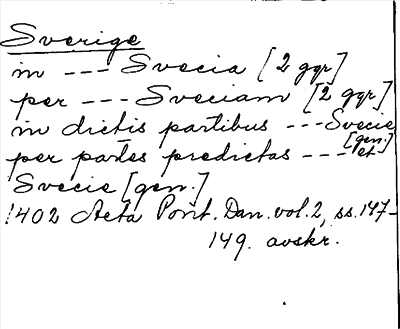 Sverige
in --- Svecia [2 ggr]
per --- Sveciam [2 ggr]
in dictis partibus --- Svecie [gen.]
per partes predictas --- et
Svecie [gen.]
1402 Acta Pont. Dan. vol. 2, ss. 147-
149. avskr.